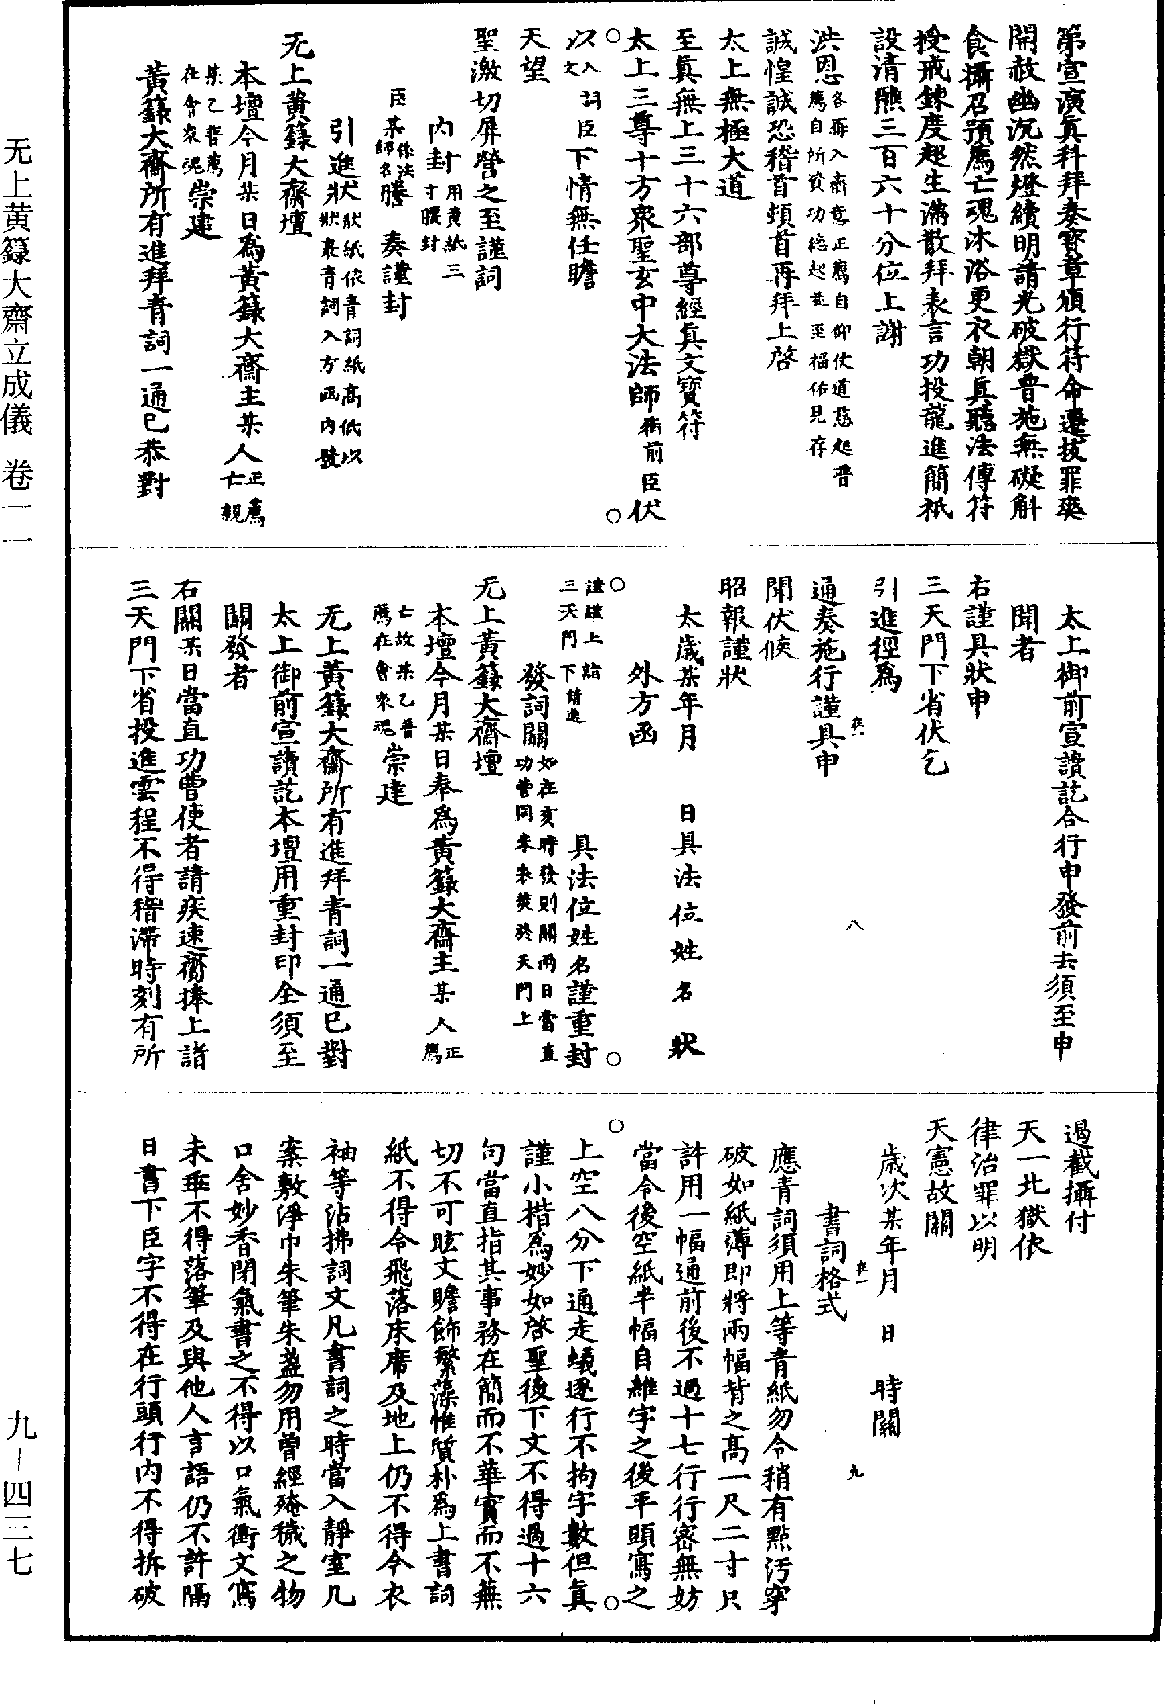 第宣演真科拜奏寶章頒行符命遷拔罪爽
開赦幽沉然燈續明請光破獄普施無礙斛
食攝召預薦亡魂沐浴更衣朝真聽法傳符
授戒鍊度超生滿散拜表言功投龍進簡祇
設清醮三百六十分位上謝
洪恩各爲入齋意正薦自仰仗道慈起普薦自所資功德起並至福佑見存
誠惶誠恐稽首頓首再拜上啓
太上無極大道
至真無上三十六部尊經真文寶符
太上三尊十方衆聖玄中大法師衛前臣伏
以入詞文臣下情無任瞻
天望
聖激切屏營之至謹詞
内封用黄紙三寸腰封
臣某係法師名謄 奏謹封
引進狀狀紙依青詞紙高低以狀裹青詞入方函内發
无上黄籙大齋壇
本壇今月某日爲黄籙大齋主某人正薦亡親
某乙普薦在會衆魂崇建
黄籙大齋所有進拜青詞一通已恭對
太上御前宣讀訖合行申發前去須至申
聞者
右謹具狀申
三天門下省伏乞
引進徑爲
通奏施行謹具申
聞伏候
昭報謹狀
太歲某年月 日具法位姓名 狀
外方函
謹謹上詣三天門下請進 具法位姓名謹重封
發詞關如在亥時發則關兩日當直功曹同奉來焚於天門上
无上黄籙大齋壇
本壇今月某日奉爲黄籙大齋主某人正薦
亡故某乙普薦在會衆魂崇建
无上黄籙大齋所有進拜青詞一通已對
太上御前宣讀訖本壇用重封印全須至
關發者
右關某日當直功曹使者請疾速齎捧上詣
三天門下省投進雲程不得稽滯時刻有所
八
過截攝付
天一北獄依
律治罪以明
天憲故關
歲次某年月 日 時關
書詞格式
應青詞須用上等青紙勿令稍有點污穿
破如紙薄即將兩幅背之高一尺二寸只
許用一幅通前後不過十七行行密無妨
當令後空紙半幅自維字之後平頭寫之
上空八分下通走蟻逐行不拘字數但真
謹小楷為妙如啓聖後下文不得過十六
句當直指其事務在簡而不華實而不蕪
切不可眩文贍飾繁藻惟質朴爲上書詞
紙不得令飛落床席及地上仍不得令衣
袖等沾拂詞文凡書詞之時當入靜室几
案敷淨巾朱筆朱盞勿用曾經殗穢之物
口含妙香閉氣書之不得以口氣衝文寫
未乖不得落筆及與他人言語仍不許隔
日書下臣字不得在行頭行内不得拆破
九
无上黄籙大齋立成儀 卷一一
九—四二七